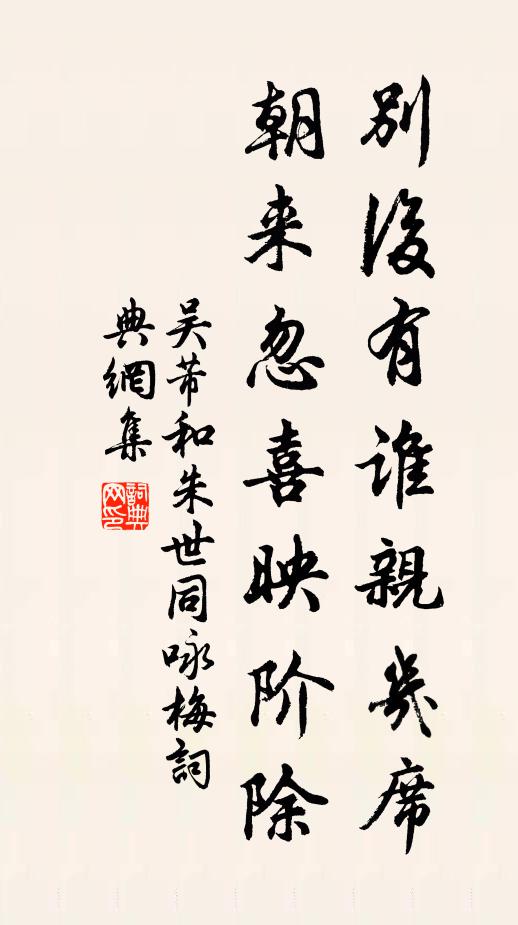 別後有谁親幾席
朝来忽喜映阶除
吴芾和朱世同咏梅詞
典網集
詞典网印